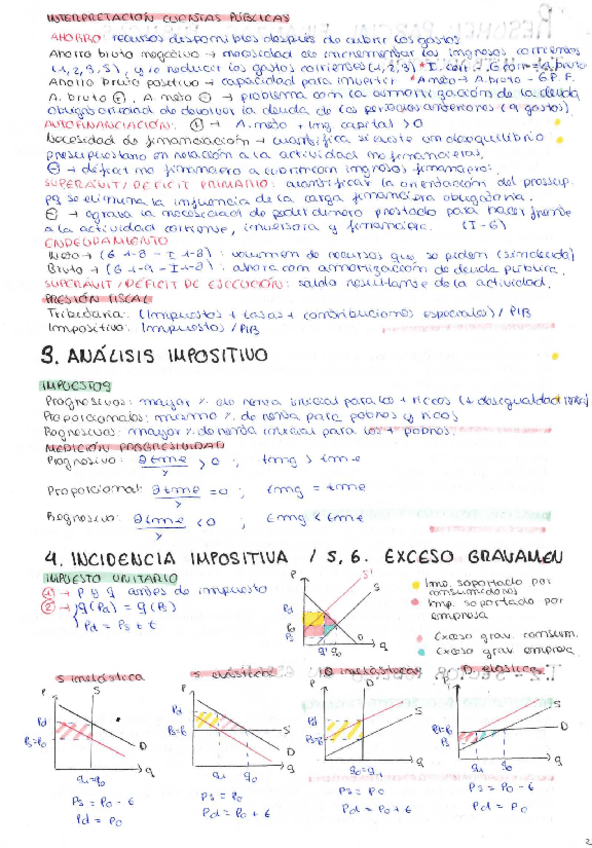 INTERPRETACIÓN CUENTAS PÚBLICAS
AHORRO: recursos disponibles después de cubrir los gastos
Ahorro bruto negativo → necesidad de incrementar los ingresos corrientes
(1,2,3,5), y/o reducir los gastos corrientes (1,2,3) * I. corr - G. corr = A. bruto
Ahorro bruto positivo → capacidad para invertir * A. neto → A. bruto - GP.F.
A. bruto ⊕, A. neto ⊖ → problema con la amortización de la deuda
obligatoriedad de devolver la deuda de los periodos anteriores (9 gastos).
AUTOFINANCIACIÓN: A. neto + Ing capital > 0
Necesidad de financiación → cuantifica si existe un desequilibrio
presupuestario en relación a la actividad no financieras.
⊖ → déficit no financiero a cubrir con ingresos financieros.
SUPERÁVIT/DEFICIT PRIMARIO: cuantificar la orientación del presup.
pq se elimina la influencia de la carga financiera obligatoria.
⊖ → agrava la necesidad de pedir dinero prestado para hacer frente
a la actividad corriente, inversora y financiera. (I-G)
ENDEUDAMIENTO
Neto → (G 1-8 - I 1-8): volumen de recursos que se piden (sin deuda)
Bruto → (G 1-9 - I 1-8): ahora con amortización de deuda pública.
SUPERÁVIT/DÉFICIT DE EJECUCIÓN: saldo resultante de la actividad.
PRESIÓN FISCAL
Tributaria: (Impuestos + tasas + contribuciones especiales) / PIB
Impositiva: Impuestos / PIB
3. ANÁLISIS IMPOSITIVO
IMPUESTOS
Progresivos: mayor % de renta inicial para los + ricos (↓ desigualdad
Proporcionales: mismo % de renta para pobres y ricos
Regresivos: mayor % de renta inicial para los + pobres.
MEDICIÓN PROGRESIVIDAD
Progresivo: ∂tme/y > 0 ; tmg > tme
Proporcional: ∂tme/y = 0 ; tmg = tme
Regresivo: ∂tme/y < 0 ; tmg < tme
4. INCIDENCIA IMPOSITIVA / 5, 6. EXCESO GRAVAMEN
IMPUESTO UNITARIO
① → P y q antes de impuesto
② → q(Pd) = q(Ps)
Pd = Ps + t
P S' S
Pd
Po
Ps
q' q0 D q
Imp. soportado por
consumidores
Imp. soportado por
empresa
Exceso grav. consum.
Exceso grav. empresa
S inelástica
S elástica
D inelástica
D. elástica
P S
Pd
Ps=Po
D
q1=q0 q
P
Pd
Ps=Po
S
D
q1 q0 q
P D
S
Pd
q0=q1 q
P
S
D
q1 q0 q
Ps = Po - t
Pd = Po
Ps = Po
Pd = Po + t
Ps = Po
Pd = Po + t
Ps = Po - t
Pd = Po
2